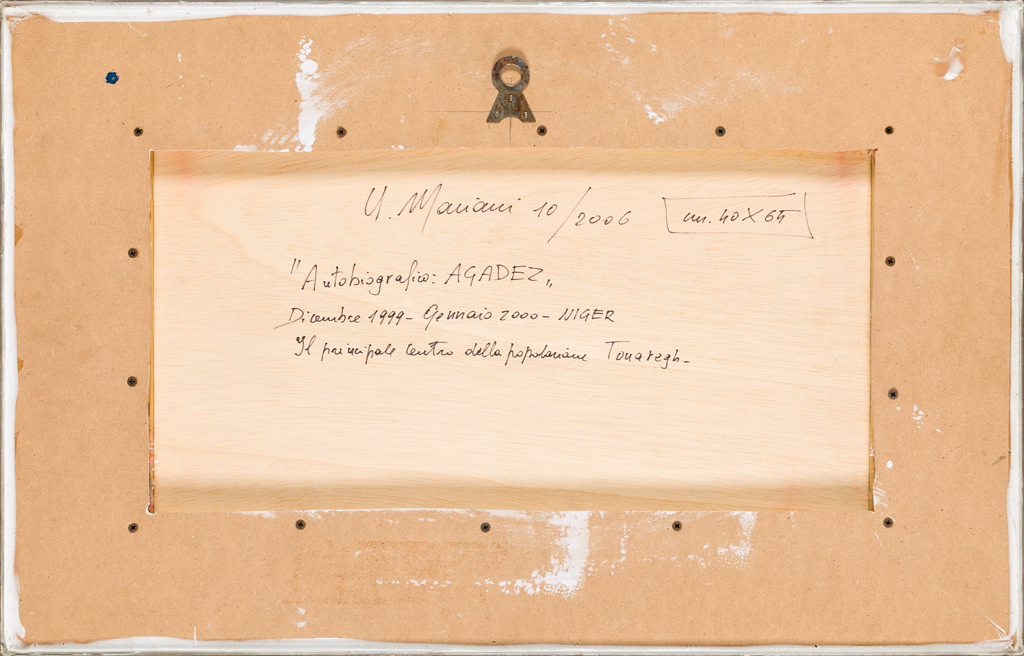 U. Mariani 10/2006 cm. 40X65
"Autobiografico: AGADEZ"
Dicembre 1999 - Gennaio 2000 - NIGER
Il principale centro della popolazione Touaregh -